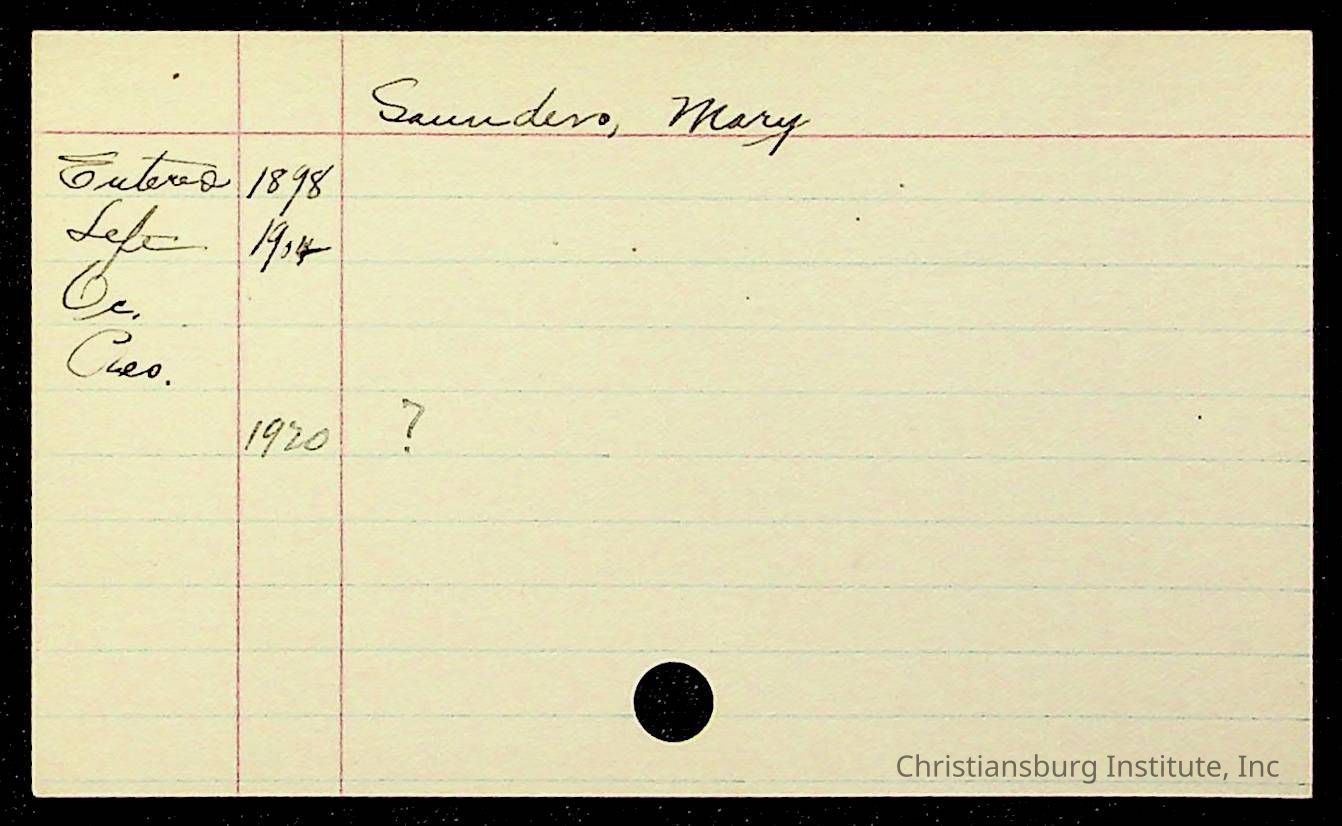 Saunders, Mary
Entered 1898
Left 1904
Oc.
Res.
1920 ?
Christiansburg Institute, Inc